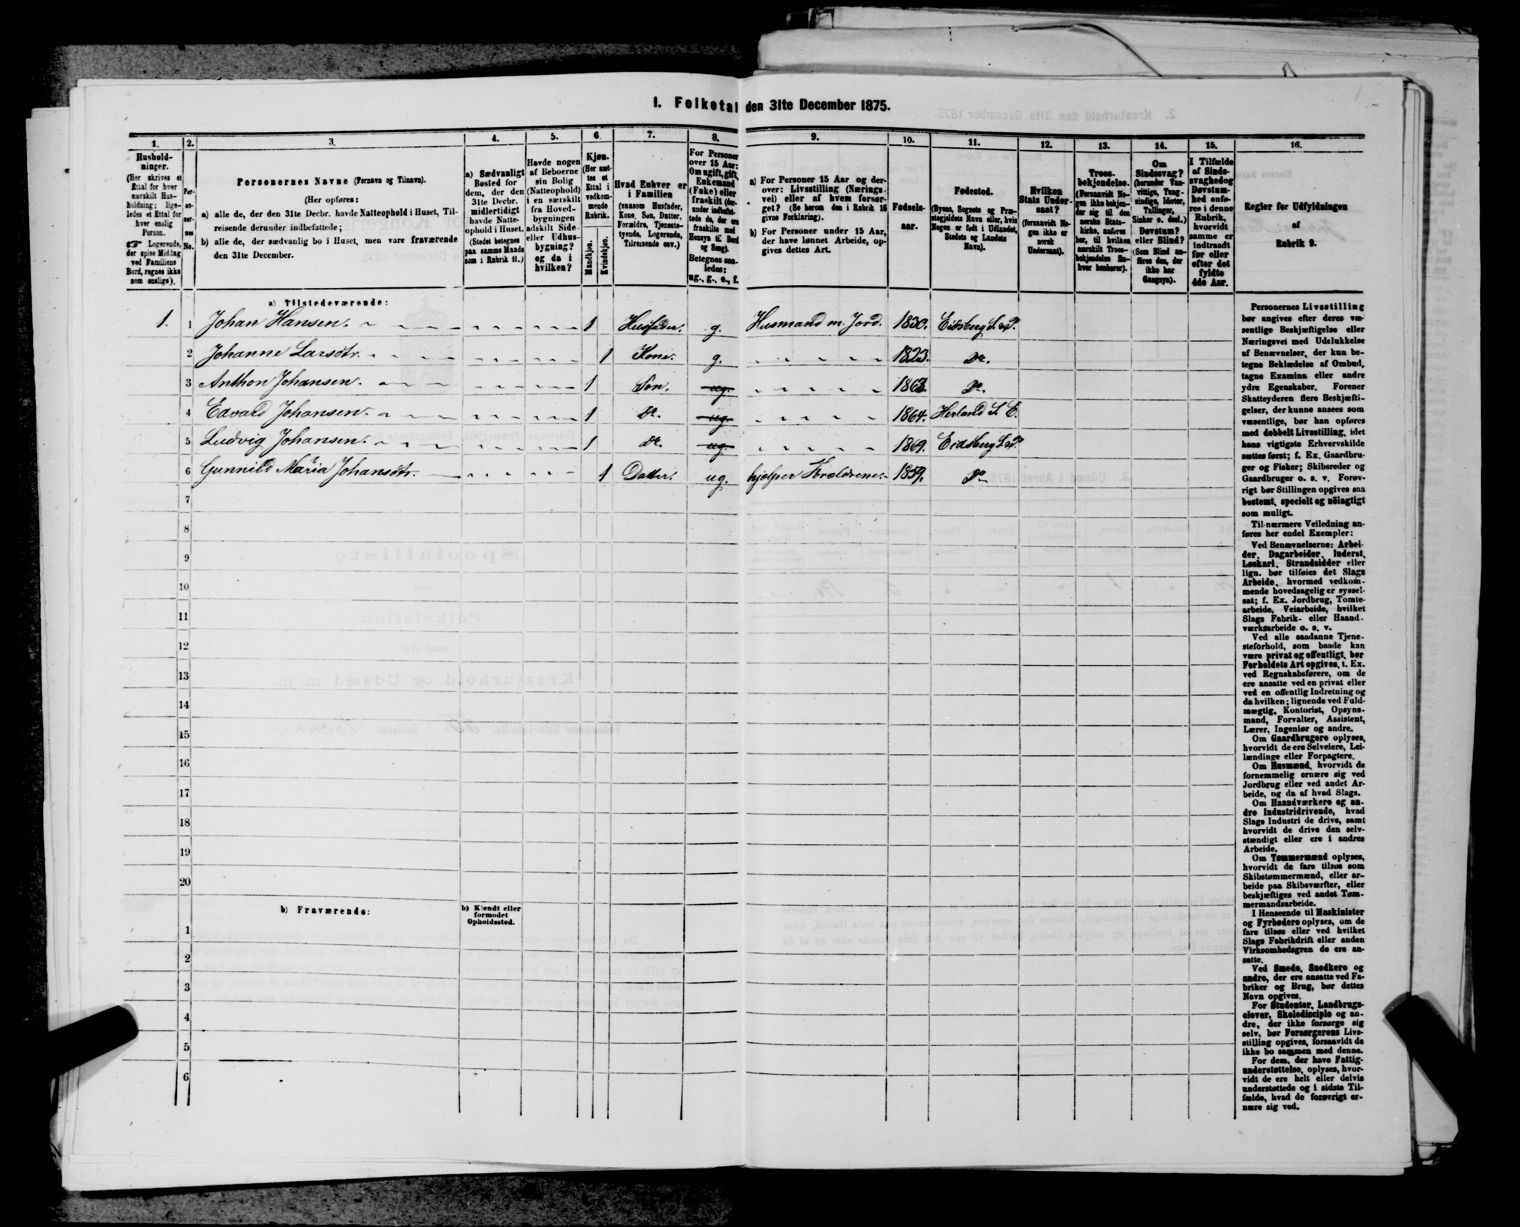 I. Folketal den 31te December 1875.
1. 2. 3. 4. 5. 6. 7. 8. 9. 10. 11. 12. 13. 14. 15. 16.
Hushold-
ninger.
(Her skrives et
Ettal for hver
særskilt Hus-
holdning; lige-
ledes et Ettal for
hver enslig
Person.
☞ Logerende,
der spise Middag
ved Familiens
Bord, regnes ikke
som enslige).
Per-
so-
ner-
nes
No.
Personernes Navne (Fornavn og Tilnavn).
(Her opføres:
a) alle de, der den 31te Decbr. havde Natteophold i Huset, Til-
reisende derunder indbefattede;
b) alle de, der sædvanlig bo i Huset, men vare fraværende
den 31te December.
a) Sædvanligt
Bosted for
dem, der den
31te Decbr.
midlertidigt
havde Natte-
ophold i Huset.
(Stedet betegnes
paa samme Maade
som i Rubrik 11.)
Havde nogen
af Beboerne
sin Bolig
(Natteophold)
i en særskilt
fra Hoved-
bygningen
adskilt Side-
eller Udhus-
bygning?
og da i
hvilken?
Kjøn.
(Her sæt-
tes et
Ettal i
vedkom-
mende
Rubrik.
Mandkjøn.
Kvindekjøn.
Hvad Enhver er
i Familien
(saasom Husfader,
Kone, Søn, Datter,
Forældre, Tjeneste-
tyende, Logerende,
Tilreisende osv.)
For Personer
over 15 Aar:
Om ugift, gift,
Enkemand
(Enke) eller
fraskilt
Betegnes saa-
ledes:
ug., g., e., f.
9.
a) For Personer 15 Aar og der-
over: Livsstilling (Nærings-
vei) eller af hvem forsør-
get? (Se herom den i Rubrik 16
givne Forklaring).
b) For Personer under 15 Aar,
der have lønnet Arbeide, op-
gives dettes Art.
Fødsels-
aar.
Fødested.
(Byens, Sognets og Præ-
stegjeldets Navn eller, hvis
Nogen er født i Udlandet,
Stedets og Landets
Navn).
Hvilken
Stats Under-
saat?
(forsaavidt No-
gen ikke er
norsk
Undersaat).
Troes-
bekjendelse.
(Forsaavidt No-
gen ikke bekjen-
der sig til den
norske Stats-
kirke, anføres
her, til hvilken
særskilt Troes-
bekjendelse En-
hver henhører).
Om
Sindssvag?
(herunder Van-
vittige, Tung-
sindige, Idioter,
Tullinger,
Sinker o. desl.)
Døvstum?
eller Blind?
(Som Blind an-
føres den, der
ikke har
Gangsyn).
I Tilfælde
af Sinds-
svaghed og
Døvstum-
hed anfø-
res i denne
Rubrik,
hvorvidt
samme er
indtraadt
før eller
efter det
fyldte
4de Aar.
Regler for Udfyldningen
af
Rubrik 9.
a) Tilstedeværende:
1. 1 Johan Hansen. 1 Husfader. g. Husmand m. Jord. 1830. Eidsberg S. & P.
2 Johanne Larsdtr. 1 Kone. g. 1823. Do.
3 Anthon Johansen. 1 Søn. ug. Do.
4 Edvard Johansen. 1 Do. ug. 1864. Herland S. E.
5 Ludvig Johansen. 1 Do. ug. 1869. Eidsberg S. & P.
6 Gunnild Maria Johansdtr. 1 Datter. ug. hjælper Forældrene. 1859. Do
7
8
9
10
11
12
13
14
15
16
17
18
19
20
b) Fraværende:
b) Kjendt eller
formodet
Opholdssted.
1
2
3
4
5
6
Personernes Livsstilling
bør angives efter deres væ-
sentlige Beskjæftigelse eller
Næringsvei med Udelukkelse
af Benævnelser, der kun be-
tegne Beklædelse af Ombud,
tagne Examina eller andre
ydre Egenskaber. Forener
Skatteyderen flere Beskjæfti-
gelser, der kunne ansees som
væsentlige, bør han opføres
med dobbelt Livsstilling, idet
hans vigtigste Erhvervskilde
sættes først; f. Ex. Gaardbru-
ger og Fisker; Skibsreder og
Gaardbruger o. s. v. Forøv-
rigt bør Stillingen opgives saa
bestemt, specielt og nøiagtigt
som muligt.
Til nærmere Veiledning an-
føres her endel Exempler:
Ved Benævnelserne: Arbei-
der, Dagarbeider, Inderst,
Løskarl, Strandsidder eller
lign. bør tilføies det Slags
Arbeide, hvormed vedkom-
mende hovedsagelig er syssel-
sat; f. Ex. Jordbrug, Tomte-
arbeide, Veiarbeide, hvilket
Slags Fabrik- eller Haand-
værksarbeide o. s. v.
Ved alle saadanne Tjene-
steforhold, som baade kan
være privat og offentligt, bør
Forholdets Art opgives, t. Ex.
ved Regnskabsførere, om de
ere ansatte ved en privat eller
ved en offentlig Indretning og
da hvilken; lignende ved Fuld-
mægtig, Kontorist, Opsyns-
mand, Forvalter, Assistent,
Lærer, Ingeniør og andre.
Om Gaardbrugere oplyses,
hvorvidt de ere Selveiere, Lei-
lændinge eller Forpagtere.
Om Husmænd, hvorvidt de
fornemmelig ernære sig ved
Jordbrug eller ved andet Ar-
beide, og da af hvad Slags.
Om Haandværkere og an-
dre Industridrivende, hvad
Slags Industri de drive, samt
hvorvidt de drive den selv-
stændigt eller ere i andres
Arbeide.
Om Tømmermænd oplyses,
hvorvidt de fare tilsøs som
Skibstømmermænd, eller ar-
beide paa Skibsværfter, eller
beskjæftiges ved andet Tøm-
mermandsarbeide.
I Henseende til Maskinister
og Fyrbødere oplyses, om de
fare tilsøs eller ved hvilket
Slags Fabrikdrift eller anden
Virksomhedsgren de ere an-
satte.
Ved Smede, Snedkere og
andre, der ere ansatte ved Fa-
briker og Brug, bør dettes
Navn opgives.
For Studenter, Landbrugs-
elever, Skoledisciple og an-
dre, der ikke forsørge sig
selv, bør Forsørgerens Livs-
stilling opgives, forsaavidt de
ikke bo sammen med denne.
For dem, der have Fattig-
understøttelse, oplyses, hvor-
vidt de ere helt eller delvis
understøttede og i sidste Til-
fælde, hvad de forøvrigt er-
nære sig ved.